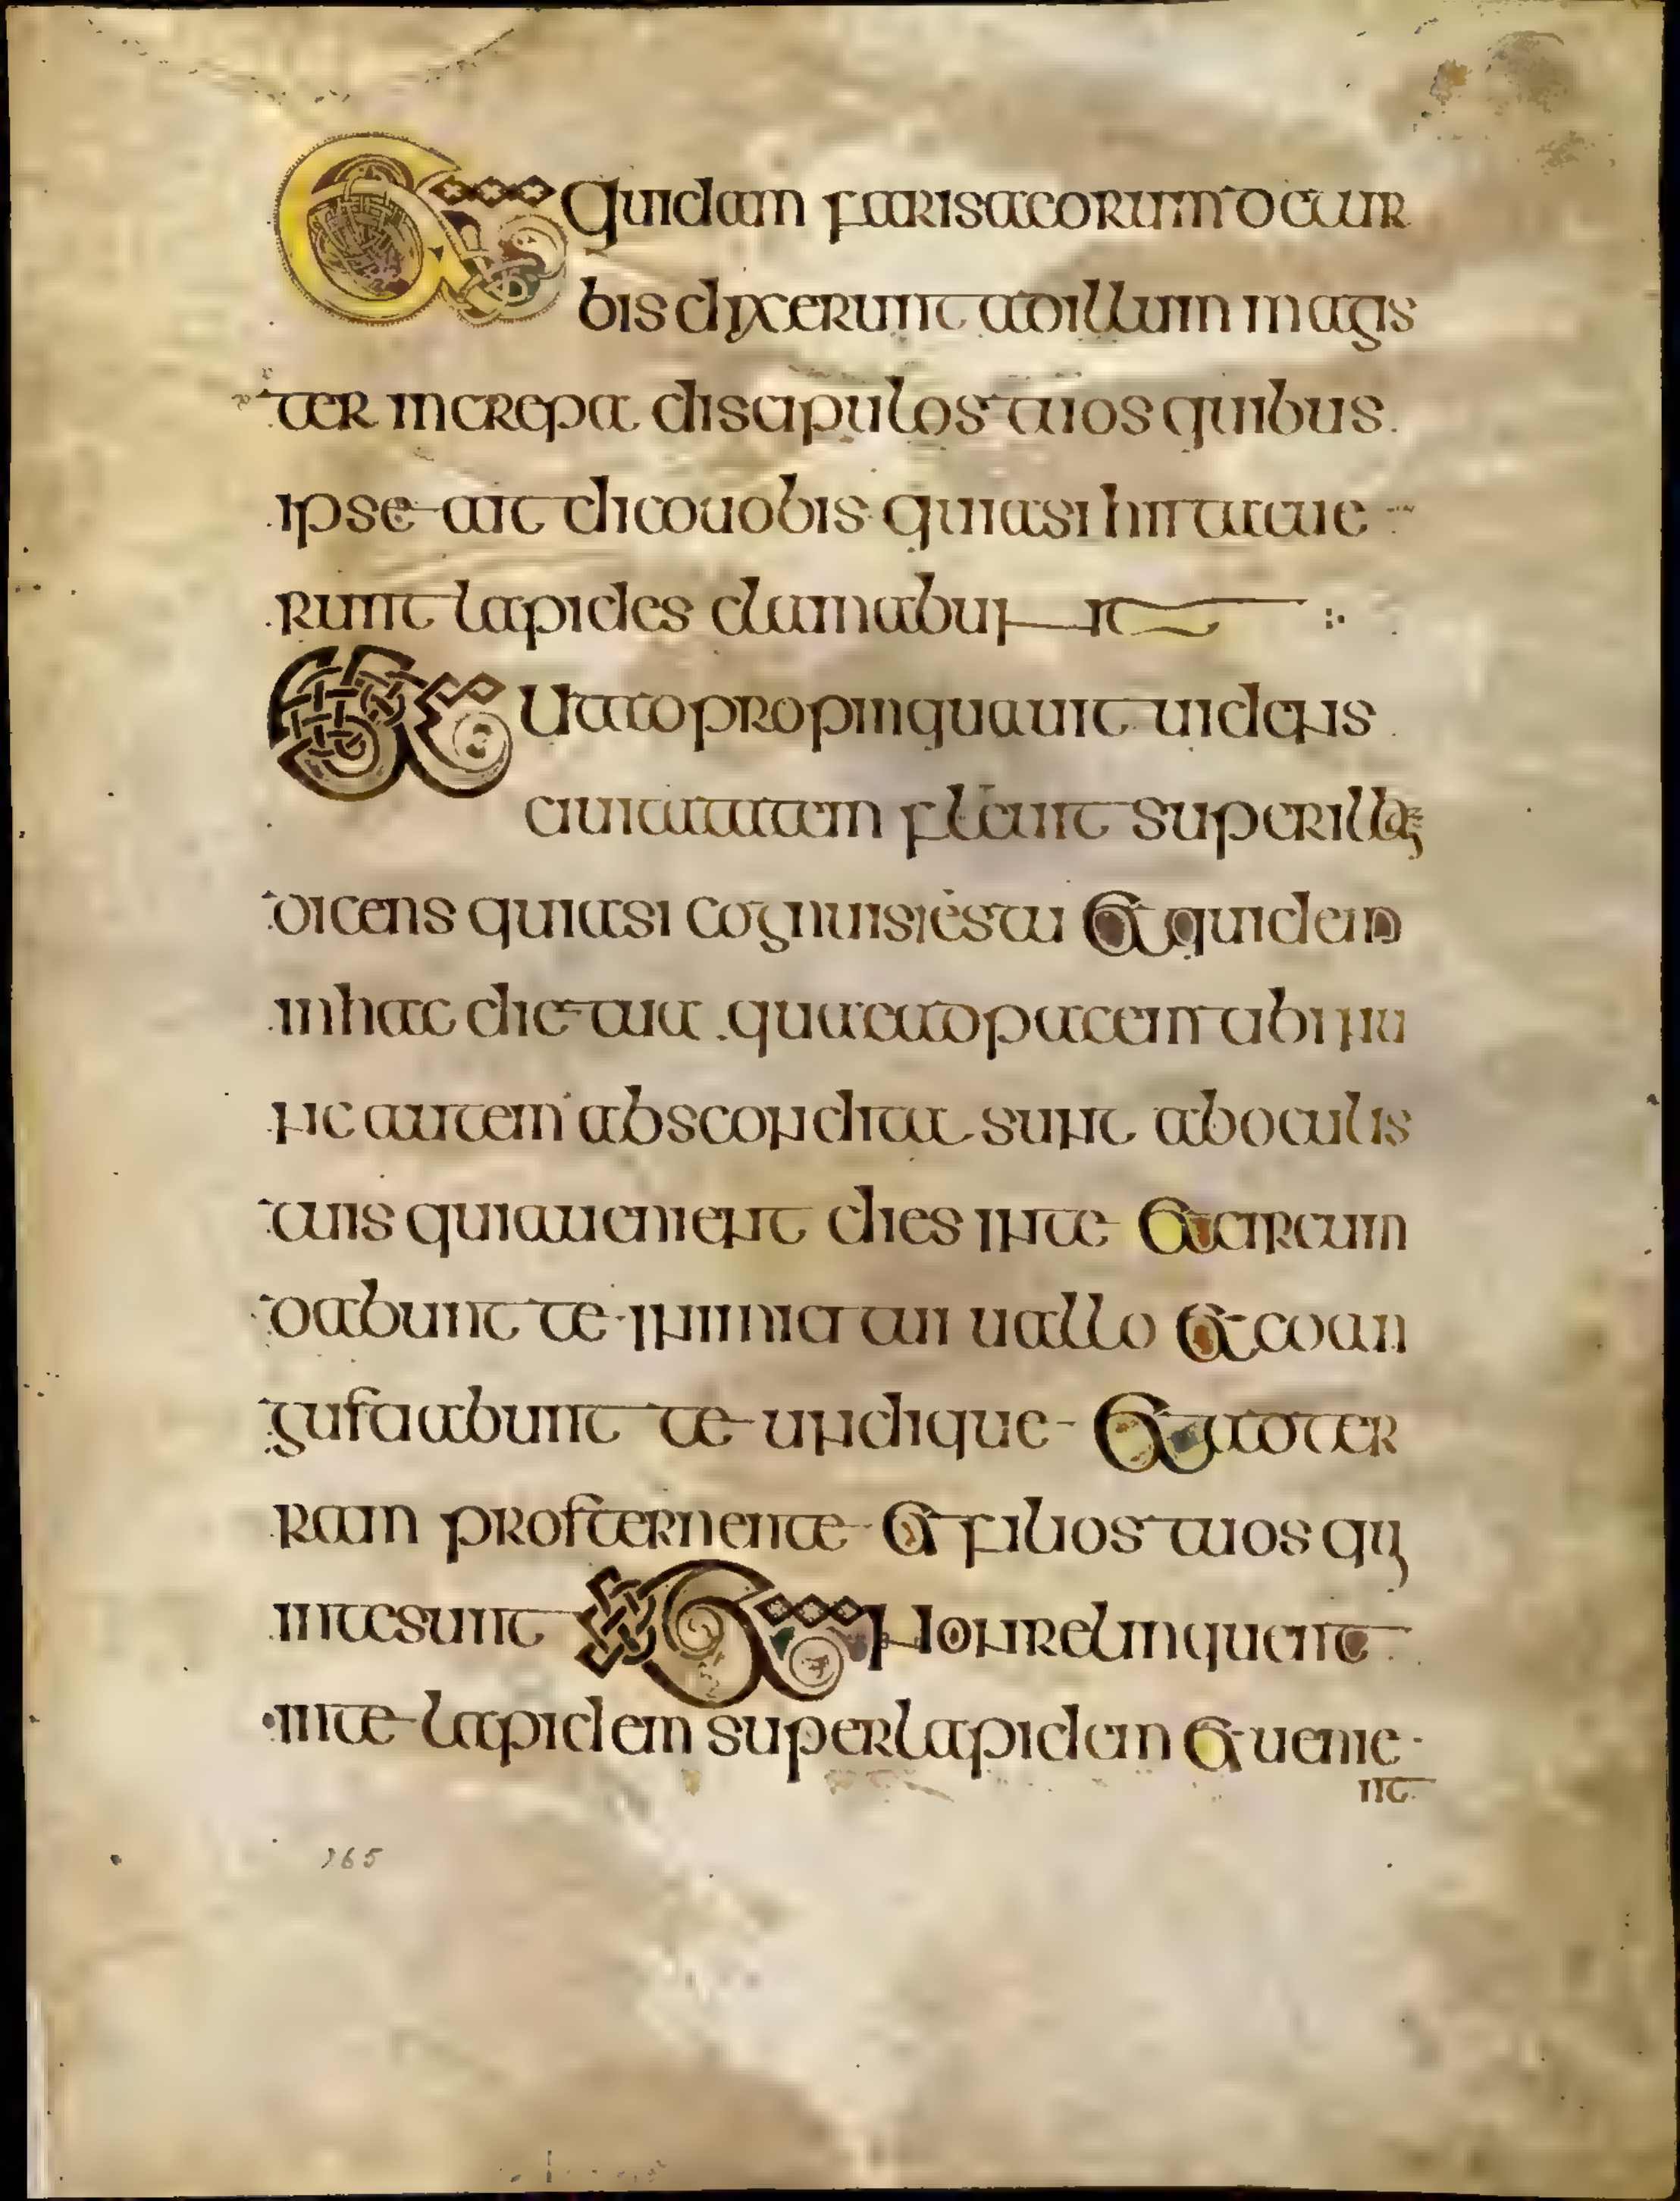 Et quidam farisaeorum de tur
bis dixerunt ad illum magis
ter increpa discipulos tuos quibus
ipse ait dico uobis quia si hii tacue
runt lapides clamabunt
Et ut adpropinquauit uidens
ciuitatem fleuit super illam
dicens quia si cognuisies tu et quidem
in hac die tua quae ad pacem tibi nu
nc autem abscondita sunt ab oculis
tuis quia uenient dies in te et circum
dabunt te inimici tui uallo et coan
gustabunt te undique et ad ter
ram prosternent te et filios tuos qui
in te sunt Et non relinquent
in te lapidem super lapidem et uenie
nt
165